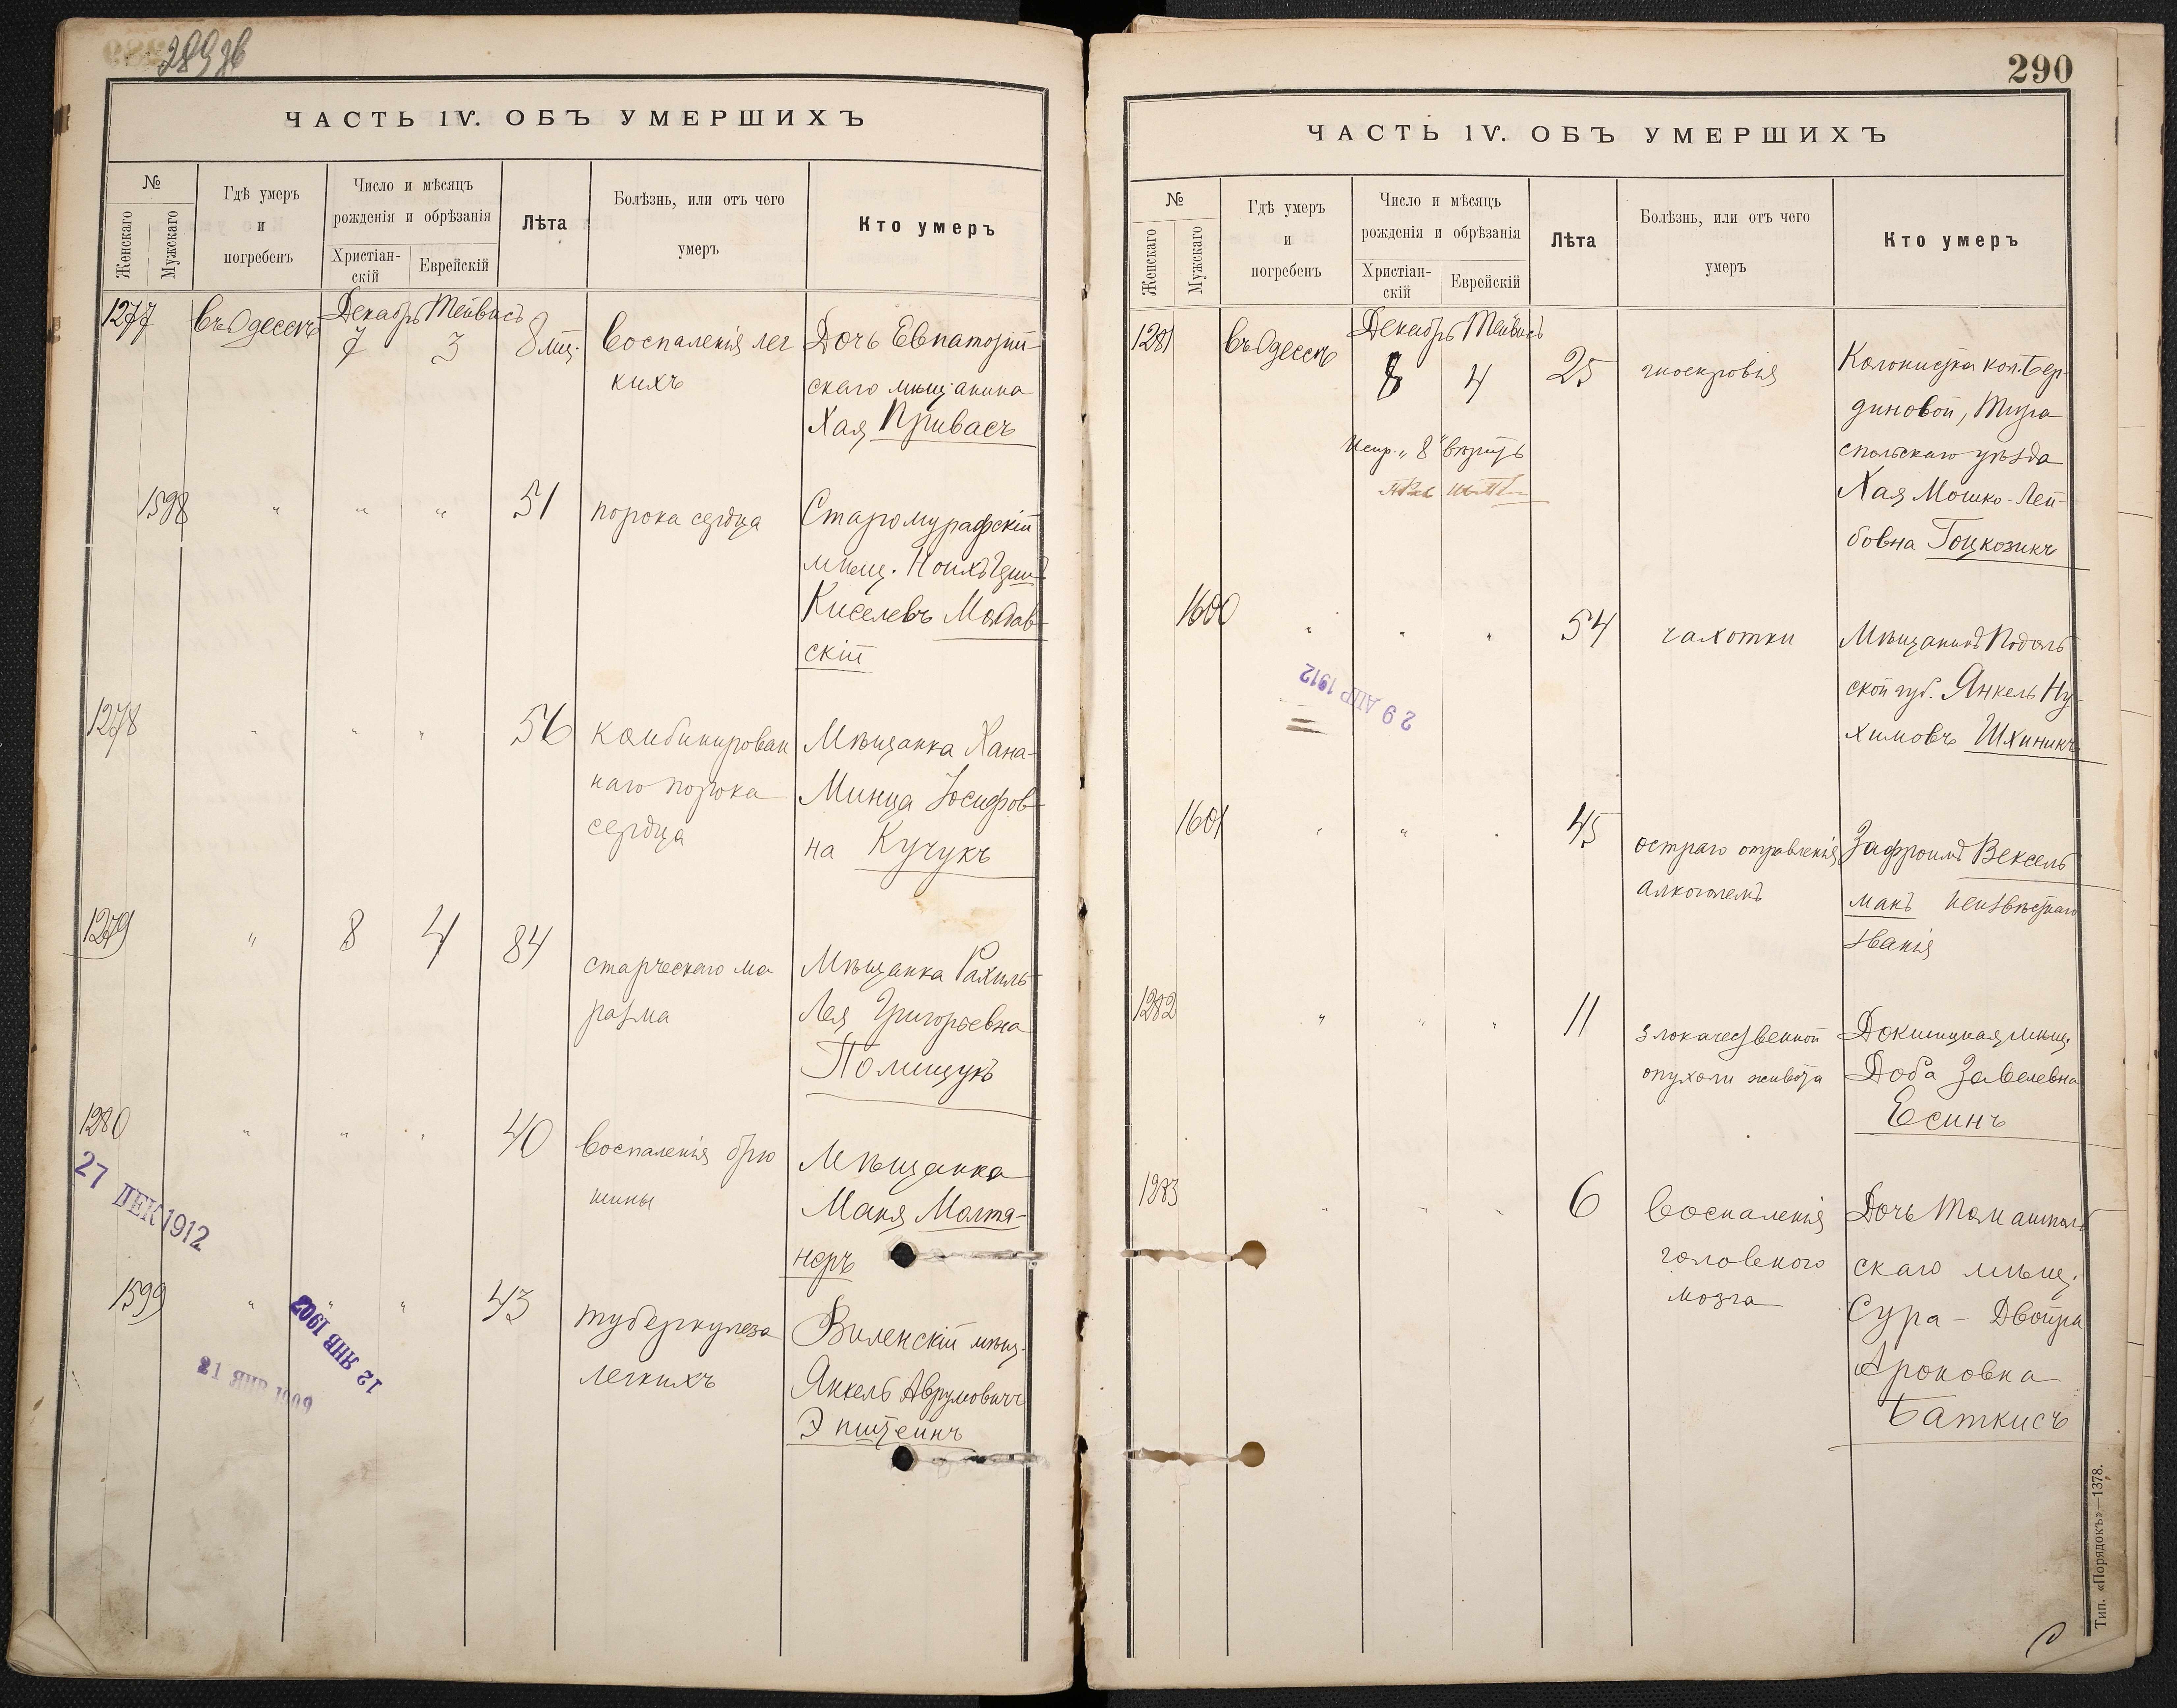 289 зв
ЧАСТЬ IV. ОБЪ УМЕРШИХЪ
№
Женскаго
Мужскаго
Гдѣ умеръ
и
погребенъ
Число и мѣсяцъ
рожденія и обрѣзанія
Христіан-
скій
Еврейскій
Лѣта
Болѣзнь, или отъ чего
умеръ
Кто умеръ
1277 въ Одессѣ Декабрь Тейвисъ
7 3 8 мѣс. Воспаленія лег
кихъ
Дочь Евпаторій-
скаго мѣщанина
Хая Привасъ
1598 " " " 51 порока сердца
Старомурафскій
мѣщ.
Киселевъ Молдав-
скій
1278 " " " 56 комбинирован
наго порока
сердца
Мѣщанка Хана-
Минца Іосифов-
на Кучукъ
1279 " 8 4 84 старческаго ма
разма
Мѣщанка Рахиль-
Лея Григорьевна
Полищукъ
1280 " " " 40 Воспаленія брю
шины
Мѣщанка
Маня Молтя-
неръ
27 ДЕК 1912
1599 " " " 43 туберкулеза
легкихъ
Виленскій мѣщ.
Янкель Аврумовичъ
Эпштейнъ
12 ЯНВ 1902
290
ЧАСТЬ IV. ОБЪ УМЕРШИХЪ
№
Женскаго
Мужскаго
Гдѣ умеръ
и
погребенъ
Число и мѣсяцъ
рожденія и обрѣзанія
Христіан-
скій
Еврейскій
Лѣта
Болѣзнь, или отъ чего
умеръ
Кто умеръ
1281 въ Одессѣ Декабрь Тейвисъ
8 4 25 гноекровія
Испр. "8" вѣрить
Колонистка кол. Бер-
диновой, Тира
спольскаго уѣзда
Хая Мошко-Лей-
бовна Гоцкозикъ
1600 " " " 54 чахотки
Мѣщанинъ Подоль
ской губ. Янкель Ну-
химовъ Шхиникъ
29 АПР 1912
1601 " " " 45 остраго отравленія
алкоголемъ
Зафроимъ Вексель
манъ неизвѣстнаго
званія
1282 " " " 11 злокачественной
опухоли живота
Докшицкая мѣщ.
Доба Завелевна
Есинъ
1283 " " " 6 Воспаленія
головного
мозга
Дочь Томашполь
скаго мѣщ.
Сура - Двойра
Ароновна
Баткисъ
Тип. «Порядокъ»—1378.